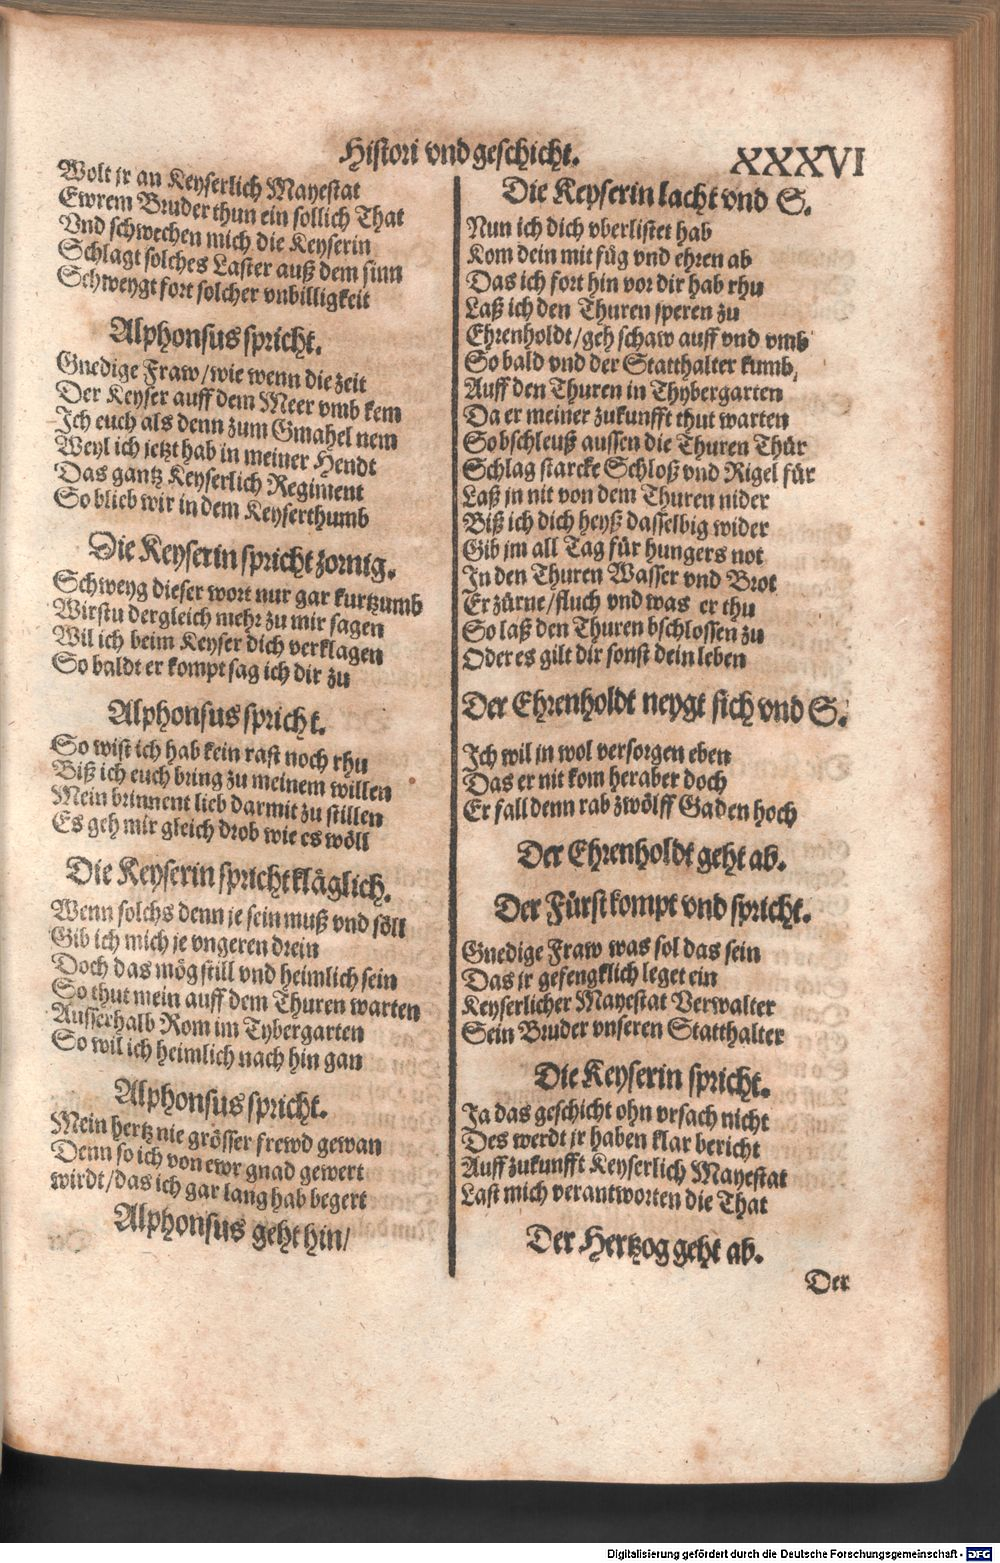 Histori vnd geschicht.
XXXVI
Wolt jr an Keyserlich Mayestat
Ewrem Bruder thun ein sollich That
Vnd schwechen mich die Keyserin
Schlagt solches Laster auß dem sinn
Schweygt fort solcher vnbilligkeit
Alphonsus spricht.
Gnedige Fraw/wie wenn die zeit
Der Keyser auff dem Meer vmb kem
Ich euch als denn zum Gmahel nem
Weyl ich jetzt hab in meiner Hendt
Das gantz Keyserlich Regiment
So blieb wir in dem Keyserthumb
Die Keyserin spricht zornig.
Schweyg dieser wort nur gar kurtzumb
Wirstu dergleich mehr zu mir sagen
Wil ich beim Keyser dich verklagen
So baldt er kompt sag ich dir zu
Alphonsus spricht.
So wist ich hab kein rast noch rhu
Biß ich euch bring zu meinem willen
Mein brinnent lieb darmit zu stillen
Es geh mir gleich drob wie es wöll
Die Keyserin spricht kläglich.
Wenn solchs denn je sein muß vnd söll
Gib ich mich je vngeren drein
Doch das mög still vnd heimlich sein
So thut mein auff dem Thuren warten
Ausserhalb Rom im Tybergarten
So wil ich heimlich nach hin gan
Alphonsus spricht.
Mein hertz nie grösser frewd gewan
Denn so ich von ewr gnad gewert
wirdt/das ich gar lang hab begert
Alphonsus geht hin/
Die Keyserin lacht vnd S.
Nun ich dich vberlistet hab
Kom dein mit füg vnd ehren ab
Das ich fort hin vor dir hab rhu
Laß ich den Thuren speren zu
Ehrenholdt/geh schaw auff vnd vmb
So bald vnd der Statthalter kumb,
Auff den Thuren in Thybergarten
Da er meiner zukunfft thut warten
So bschleuß aussen die Thuren Thür
Schlag starcke Schloß vnd Rigel für
Laß jn nit von dem Thuren nider
Biß ich dich heyß dasselbig wider
Gib jm all Tag für hungers not
In den Thuren Wasser vnd Brot
Er zürne/fluch vnd was er thu
So laß den Thuren bschlossen zu
Oder es gilt dir sonst dein leben
Der Ehrenholdt neygt sich vnd S.
Ich wil jn wol versorgen eben
Das er nit kom heraber doch
Er fall denn rab zwölff Gaden hoch
Der Ehrenholdt geht ab.
Der Fürst kompt vnd spricht.
Gnedige Fraw was sol das sein
Das jr gefengklich leget ein
Keyserlicher Mayestat Verwalter
Sein Bruder vnseren Statthalter
Die Keyserin spricht.
Ja das geschicht ohn vrsach nicht
Des werdt jr haben klar bericht
Auff zukunfft Keyserlich Mayestat
Last mich verantworten die That
Der Hertzog geht ab.
Der
Digitalisierung gefördert durch die Deutsche Forschungsgemeinschaft - DFG